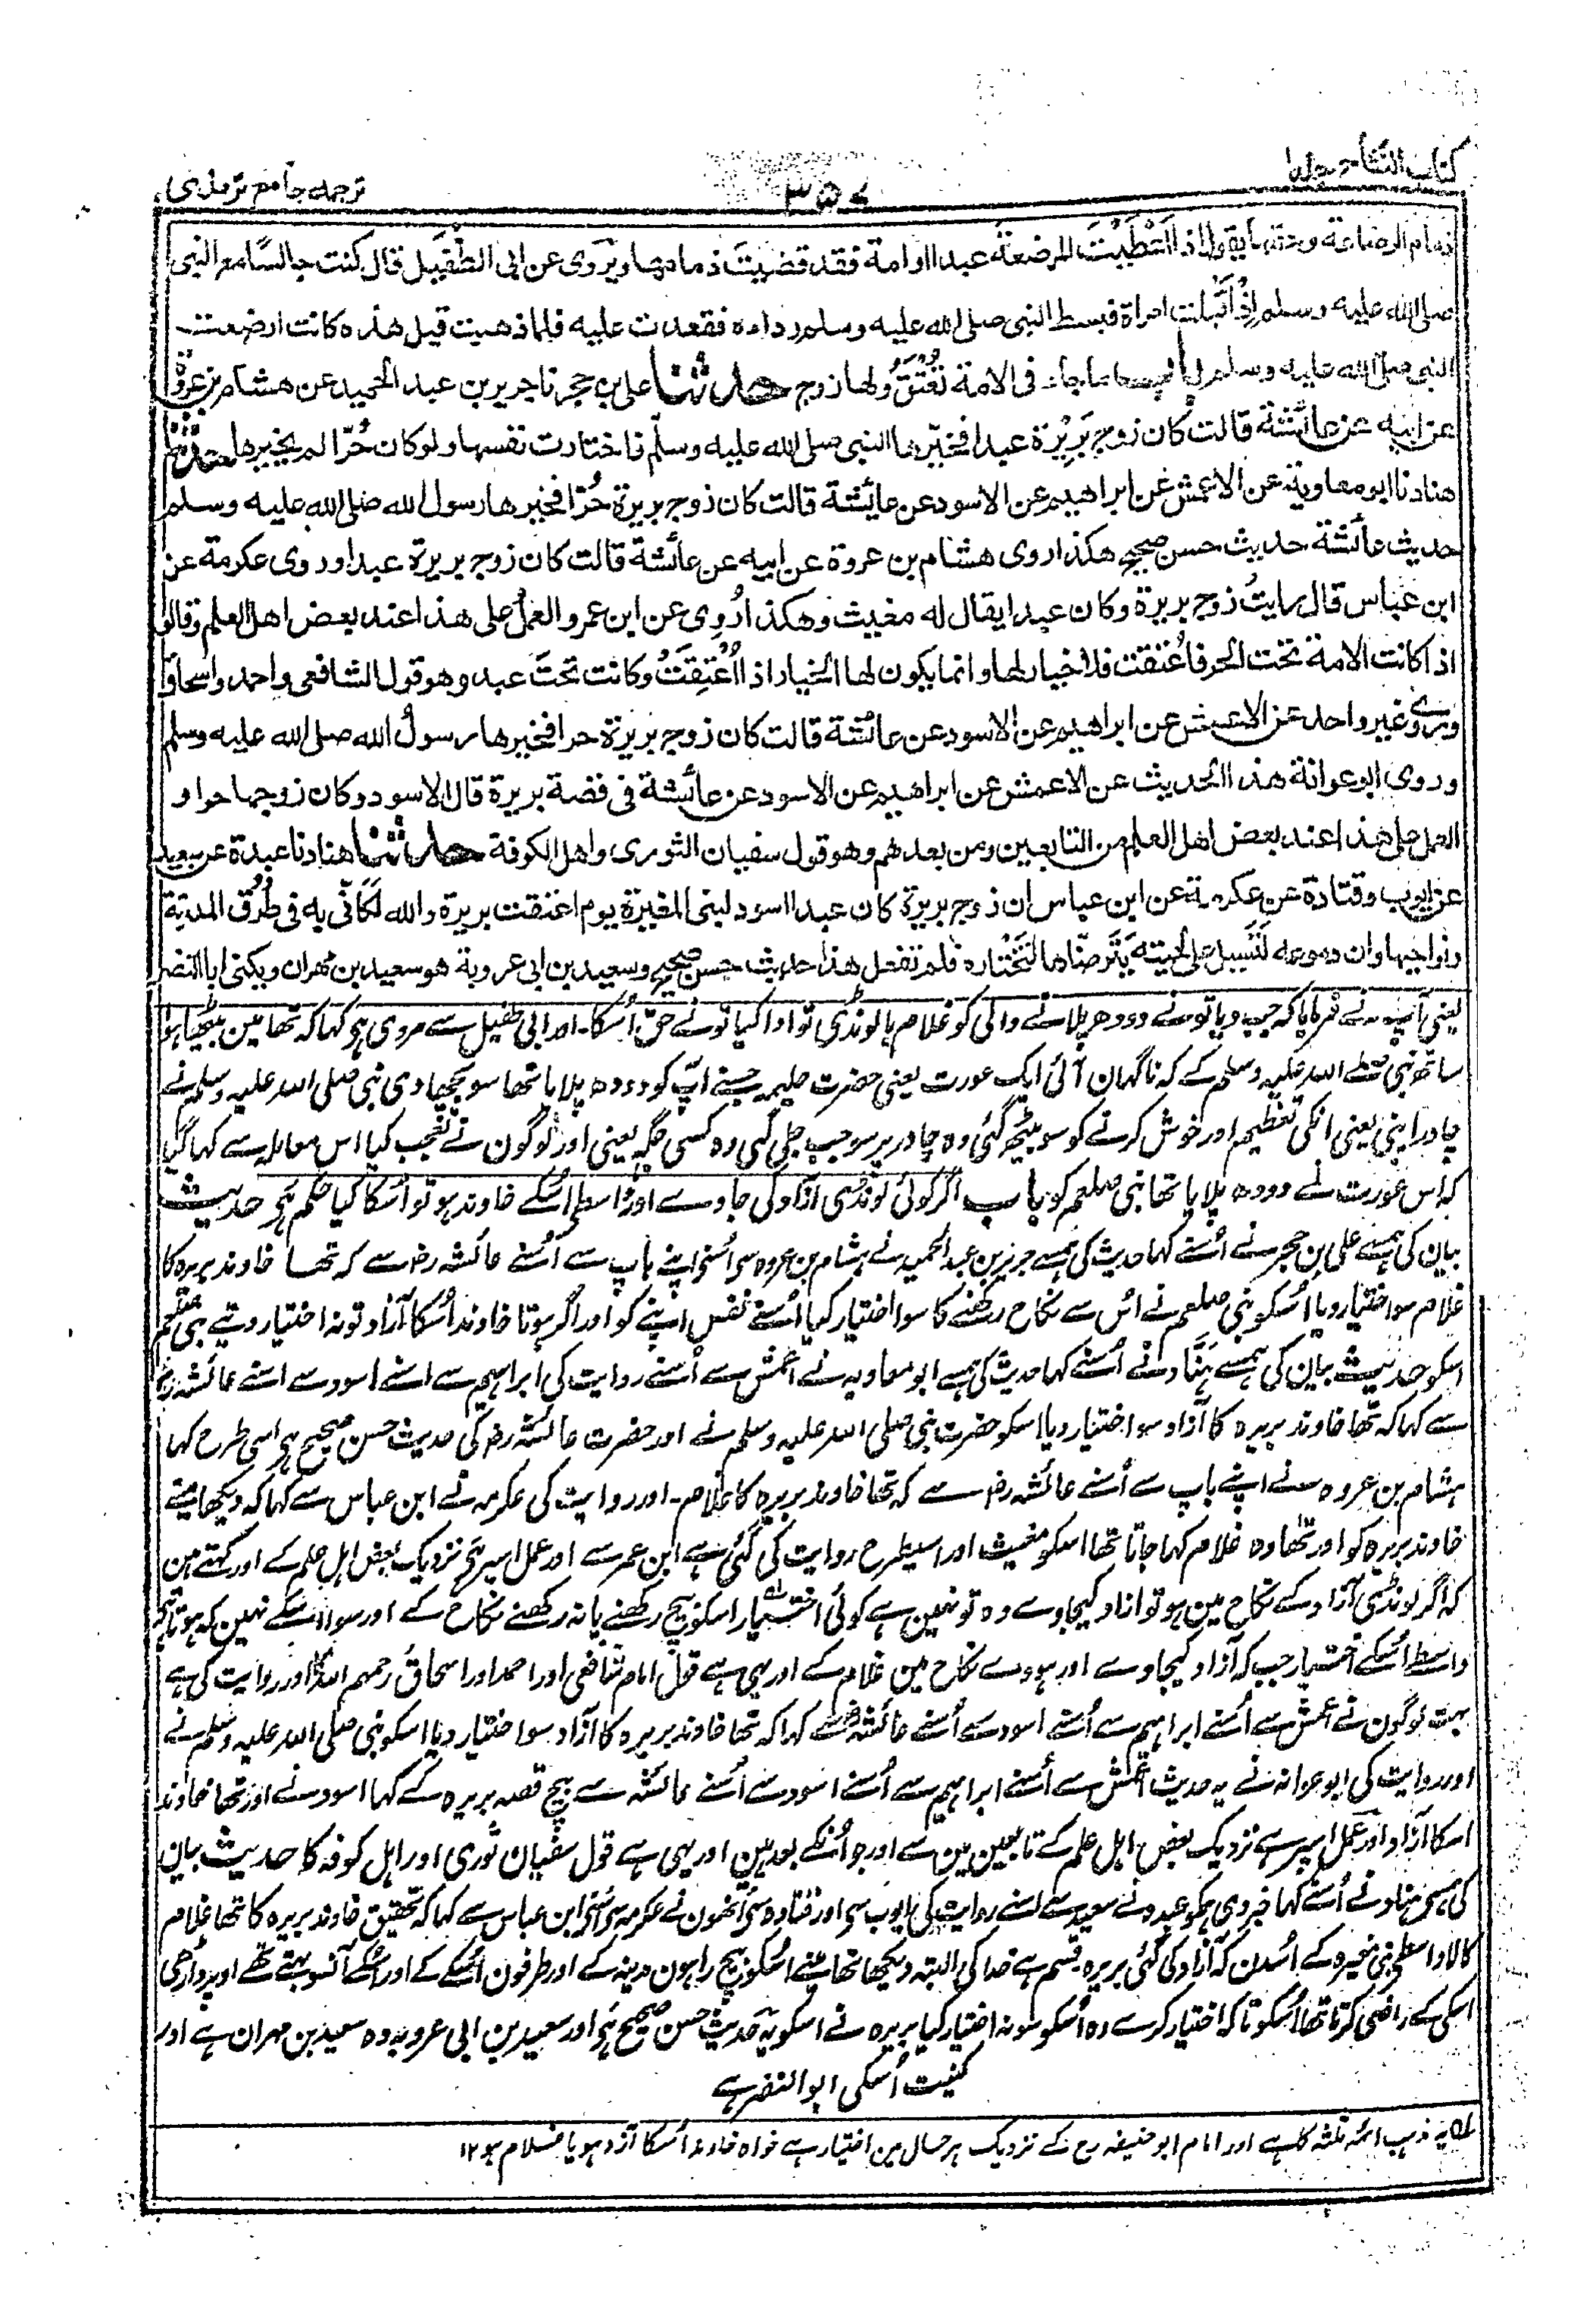 ترجمہ جامع ترمذی
ذمام الرضاعة وحقها يقول اذا اعْطَيْتَ المرضعة عبدا اوامة فقد قضيتَ ذمامها ويُروى عن ابى الطفيل قال كنت جالسًا مع النبى
صلى الله عليه وسلم اِذْ اَقْبَلت امراة فبسط النبى صلى الله عليه وسلم رداءه فقعدت عليه فلما ذهبت قيل هذه كانت ارضعت
النبى صلى الله عليه وسلم باب ما جاء فى الامة تُعْتَقُ ولها زوج حدثنا على بن حجر نا جرير بن عبد الحميد عن هشام بن عروة
عن ابيه عن عائشة قالت كان زوج بَرِيْرة عبدا فخيّرها النبى صلى الله عليه وسلم فاختارت نفسها ولو كان حُرّا لم يخيرها حدثنا
هناد نا ابو معاوية عن الاعمش عن ابراهيم عن الاسود عن عائشة قالت كان زوج بريرة حُرّا فخيرها رسول الله صلى الله عليه وسلم
حديث عائشة حديث حسن صحيح هكذا روى هشام بن عروة عن ابيه عن عائشة قالت كان زوج بريرة عبدا وروى عكرمة عن
ابن عباس قال رايتُ زوج بريرة وكان عبدا يقال له مغيث وهكذا رُوِى عن ابن عمر والعملُ على هذا عند بعض اهل العلم وقالوا
اذا كانت الامة تحت الحر فاُعْتقت فلا خيار لها وانما يكون لها الخيار اذا اُعْتِقَتْ وكانت تحتَ عبد وهو قول الشافعى واحمد واسحاق
وروى غير واحد عن الاعمش عن ابراهيم عن الاسود عن عائشة قالت كان زوج بريرة حرا فخيرها رسول الله صلى الله عليه وسلم
وروى ابو عوانة هذا الحديث عن الاعمش عن ابراهيم عن الاسود عن عائشة فى قصة بريرة قال الاسود وكان زوجها حرا و
العمل على هذا عند بعض اهل العلم من التابعين ومن بعدهم وهو قول سفيان الثورى واهل الكوفة حدثنا هناد نا عبدة عن سعيد
عن ايوب وقتادة عن عكرمة عن ابن عباس ان زوج بريرة كان عبدا اسود لبنى المغيرة يوم اعتقت بريرة والله لَكَانّى به فى طُرُق المدينة
ونواحيها وان دموعه لَتَسِيل على لحيته يَتَرضّاها لتَخْتاره فلم تفعل هذا حديث حسن صحيح وسعيد بن ابى عروبة هو سعيد بن مهران ويكنى ابا النضر
یعنی آپ نے فرمایا کہ جب دیا تونے دودھ پلانے والی کو غلام یا لونڈی تو ادا کیا تونے حق اُسکا۔ اور ابی طفیل سے مروی ہی کہا کہ تھا مین بیٹھا ہوا
ساتھ نبی صلے اللہ علیہ وسلم کے کہ ناگہان آئی ایک عورت یعنی حضرت حلیمہ جسنے آپ کو دودھ پلایا تھا سو بچھا دی نبی صلی اللہ علیہ وسلم نے
چادر اپنی یعنی انکی تعظیم اور خوش کرنے کو سو بیٹھ گئی وہ چادر پر سو جب چلی گئی وہ کسی جگہ یعنی اور لوگون نے تعجب کیا اس معاملہ سے کہا گیا
کہ اس عورت نے دودھ پلایا تھا نبی صلعم کو باب اگر کوئی لونڈی آزاد کی جاوے اور واسطے اُسکے خاوند ہو تو اُسکا کیا حکم ہے حدیث
بیان کی ہمسے علی بن حجر نے اُسنے کہا حدیث کی ہمسے جریر بن عبد الحمید نے ہشام بن عروہ سی اُسنی اپنے باپ سے اُسنے عائشہ رض سے کہ تھا خاوند بریرہ کا
غلام سو اختیار دیا اُسکو نبی صلعم نے اُس سے نکاح رکھنے کا سو اختیار کیا اُسنے نفس اپنے کو اور اگر ہوتا خاوند اُسکا آزاد تو نہ اختیار دیتے نبی صلعم
اسکو حدیث بیان کی ہمسے ہنّاد نے اُسنے کہا حدیث کی ہمسے ابو معاویہ نے اعمش سے اُسنے روایت کی ابراہیم سے اسنے اسود سے اسنے عائشہ رض
سے کہا کہ تھا خاوند بریرہ کا آزاد سو اختیار دیا اسکو حضرت نبی صلی اللہ علیہ وسلم نے اور حضرت عائشہ رض کی حدیث حسن صحیح ہی اسی طرح کہا
ہشام بن عروہ نے اپنے باپ سے اُسنے عائشہ رض سے کہ تھا خاوند بریرہ کا غلام۔ اور روایت کی عکرمہ نے ابن عباس سے کہا کہ دیکھا مینے
خاوند بریرہ کو اور تھا وہ غلام کہا جاتا تھا اسکو مغیث اور اسیطرح روایت کی گئی ہے ابن عمر سے اور عمل اسپر ہے نزدیک بعض اہل علم کے اور کہتے ہین
کہ اگر لونڈی آزاد کے نکاح مین ہو تو آزاد کیجاوے وہ تو نہین ہے کوئی اختیار اسکو بیچ رکھنے یا نہ رکھنے نکاح کے اور سوا اسکے نہین کہ ہوتا ہی
واسطے اُسکے اختیار جب کہ آزاد کیجاوے اور ہووے نکاح مین غلام کے اور یہی ہے قول امام شافعی اور احمد اور اسحاق رحمہم اللہ کا اور روایت کی ہے
بہت لوگون نے اعمش سے اُسنے ابراہیم سے اُسنے اسود سے اُسنے عائشہ رض سے کہا کہ تھا خاوند بریرہ کا آزاد سو اختیار دیا اسکو نبی صلی اللہ علیہ وسلم نے
اور روایت کی ابو عوانہ نے یہ حدیث اعمش سے اُسنے ابراہیم سے اُسنے اسود سے اُسنے عائشہ سے بیچ قصہ بریرہ کے کہا اسود نے اور تھا خاوند
اسکا آزاد اور عمل اسپر ہے نزدیک بعض اہل علم کے تابعین مین سے اور جو اُنکے بعد ہین اور یہی ہے قول سفیان ثوری اور اہل کوفہ کا حدیث بیان
کی ہمسی ہناد نے اُسنے کہا خبر دی ہمکو عبدہ نے سعید سے اسنے روایت کی ایوب سی اور قتادہ سی اُنھون نے عکرمہ سی اُسنی ابن عباس سے کہا کہ تحقیق خاوند بریرہ کا تھا غلام
کالا واسطے بنی مغیرہ کے اُسدن کہ آزاد کی گئی بریرہ قسم ہے خدا کی البتہ دیکھا تھا مینے اُسکو بیچ راہون مدینہ کے اور طرفون اُسکے کے اور اُسکے آنسو بہتے تھے اوپر داڑھی
اسکی کے راضی کرتا تھا اُسکو تاکہ اختیار کرے وہ اُسکو سو نہ اختیار کیا بریرہ نے اسکو یہ حدیث حسن صحیح ہی اور سعید بن ابی عروبہ وہ سعید بن مہران ہے اور
کنیت اُسکی ابو النضر ہے
یہ مذہب ائمہ ثلثہ کا ہے اور امام ابو حنیفہ رح کے نزدیک ہر حال مین اختیار ہے خواہ خاوند اُسکا آزاد ہو یا غلام ہو ۱۲